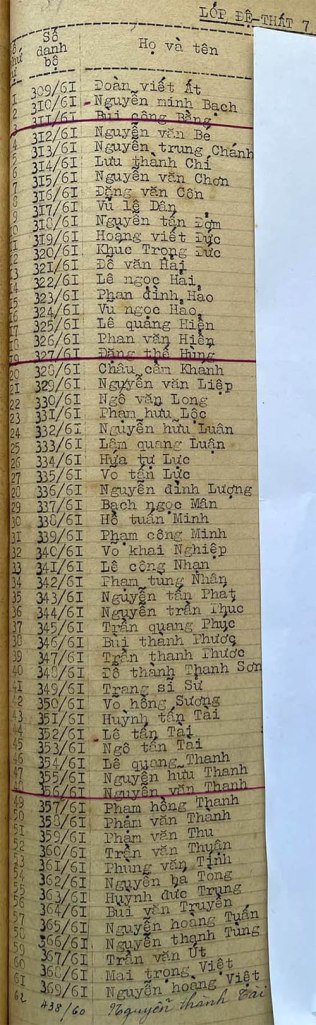 LỚP ĐỆ-THẤT 7
Số
danh
bộ
Họ và tên
1 309/61 Đoàn viết Ất
2 310/61 Nguyễn minh Bạch
3 311/61 Bùi công Bằng
4 312/61 Nguyễn văn Bé
5 313/61 Nguyễn trung Chánh
6 314/61 Lưu thành Chí
7 315/61 Nguyễn văn Chơn
8 316/61 Đặng văn Côn
9 317/61 Vũ lê Dân
10 318/61 Nguyễn tấn Đởm
11 319/61 Hoàng viết Đức
12 320/61 Khuc Trọng Đức
13 321/61 Đỗ văn Hai
14 322/61 Lê ngọc Hai
15 323/61 Phan đình Hao
16 324/61 Vu ngọc Hao
17 325/61 Lê quảng Hiện
18 326/61 Phan văn Hiện
19 327/61 Đặng thế Hùng
20 328/61 Châu cẩm Khanh
21 329/61 Nguyễn văn Liệp
22 330/61 Ngô văn Long
23 331/61 Phạm hữu Lộc
24 332/61 Nguyễn hữu Luân
25 333/61 Lâm quang Luận
26 334/61 Hứa tự Lực
27 335/61 Vo tấn Lực
28 336/61 Nguyễn đình Lượng
29 337/61 Bạch ngọc Mân
30 338/61 Hồ tuấn Minh
31 339/61 Phạm công Minh
32 340/61 Vo khai Nghiệp
33 341/61 Lê công Nhan
34 342/61 Phạm tung Nhân
35 343/61 Nguyễn tấn Phat
36 344/61 Nguyễn trần Phuc
37 345/61 Trần quang Phục
38 346/61 Bùi thành Phước
39 347/61 Trần thanh Phước
40 348/61 Đỗ thành Thanh Sơn
41 349/61 Trang sĩ Sư
42 350/61 Vo hồng Sương
43 351/61 Huỳnh tấn Tài
44 352/61 Lê tấn Tại
45 353/61 Ngô tấn Tai
46 354/61 Lê quang Thanh
47 355/61 Nguyễn hưu Thanh
356/61 Nguyễn văn Thanh
49 357/61 Phạm hồng Thạnh
50 358/61 Phạm văn Thanh
51 359/61 Phạm văn Thu
52 360/61 Trần văn Thuận
53 361/61 Phùng văn Tỉnh
54 362/61 Nguyễn ba Tong
55 363/61 Huynh đức Trung
56 364/61 Bui văn Truyền
57 365/61 Nguyễn hoàng Tuấn
58 366/61 Nguyễn thanh Tùng
59 367/61 Trần văn Út
60 368/61 Mai trọng Việt
61 369/61 Nguyễn hoàng Việt
62 438/60 Nguyễn thành Tài